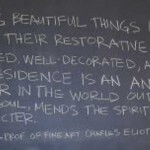 G BEAUTIFUL THINGS
THEIR RESTORATIVE
ED, WELL-DECORATED, A
SIDENCE IS AN AN
R IN THE WORLD OUT
OUL, MENDS THE SPIRIT
CTER.
PROF OF FINE ART CHARLES ELIOT